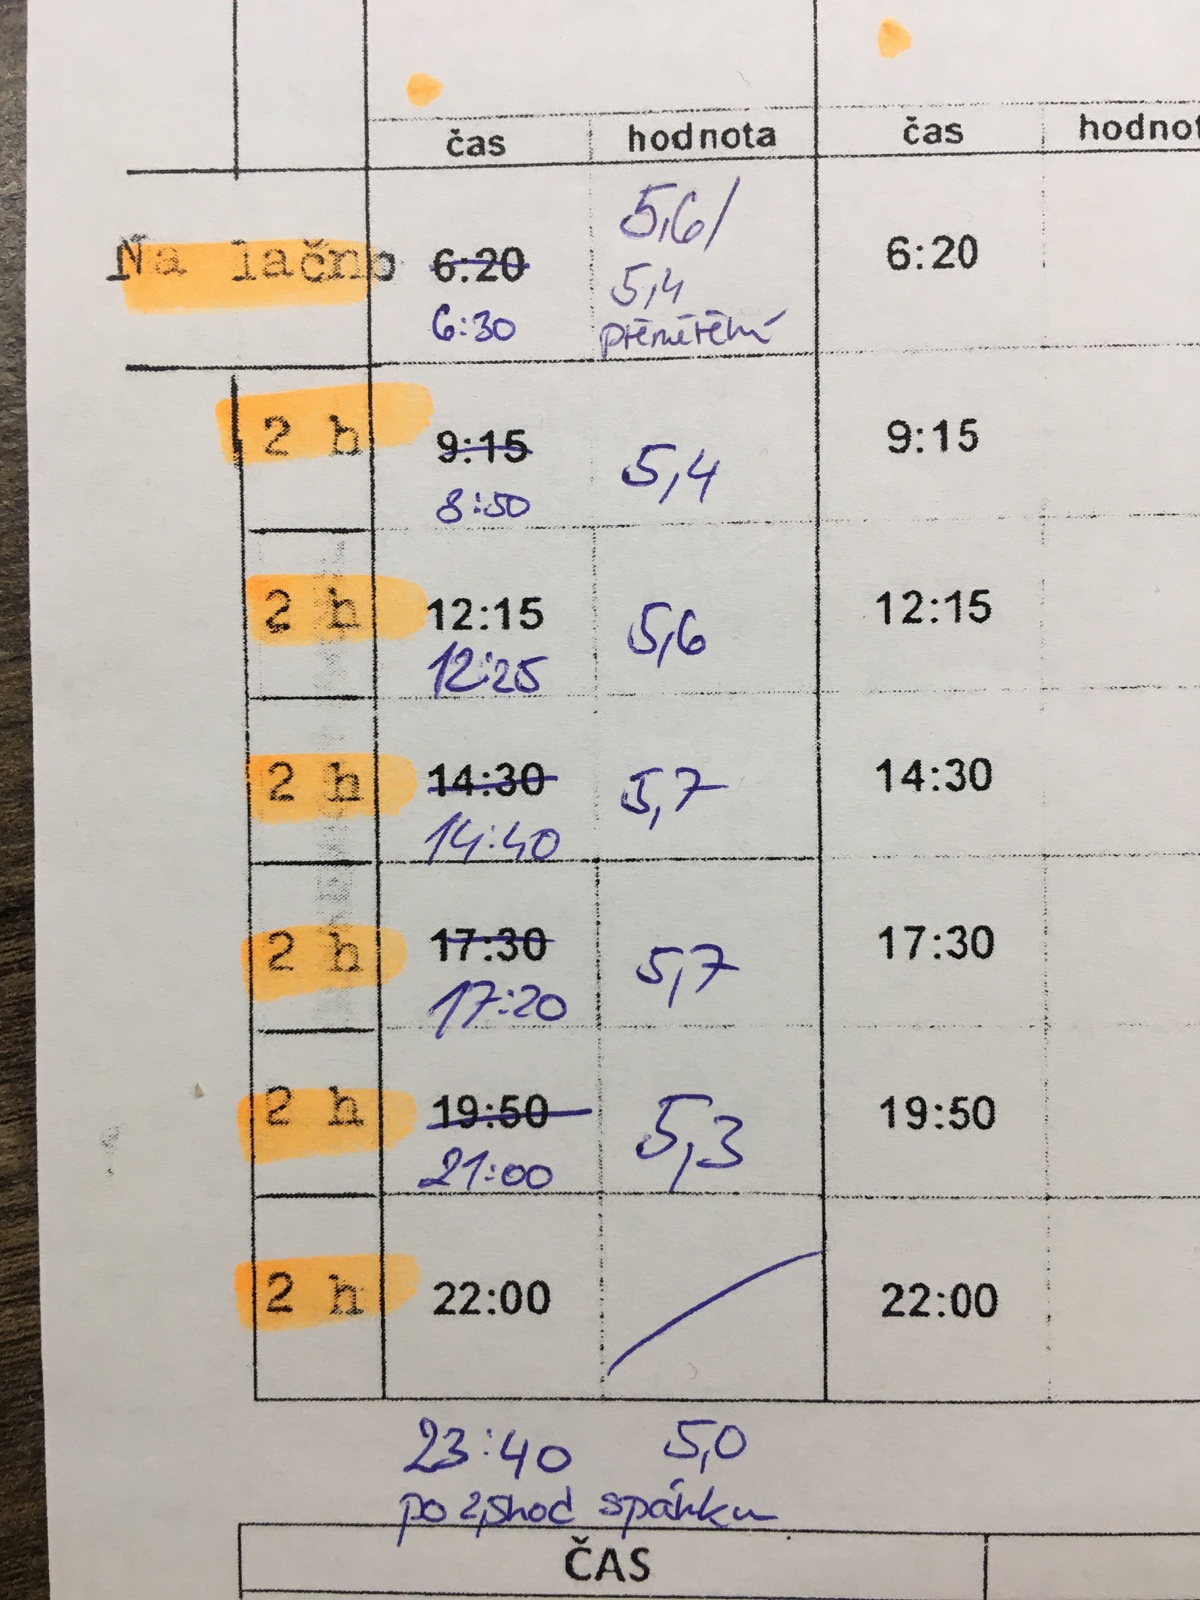 čas hodnota čas hodnot
Na lačno 6:20 5,6/ 6:20
6:30 5,4
přeměření
2 h 9:15 5,4 9:15
8:50
2 h 12:15 5,6 12:15
12:25
2 h 14:30 5,7 14:30
14:40
2 h 17:30 5,7 17:30
17:20
2 h 19:50 5,3 19:50
21:00
2 h 22:00 22:00
23:40 5,0
po 2,5hod spánku
ČAS